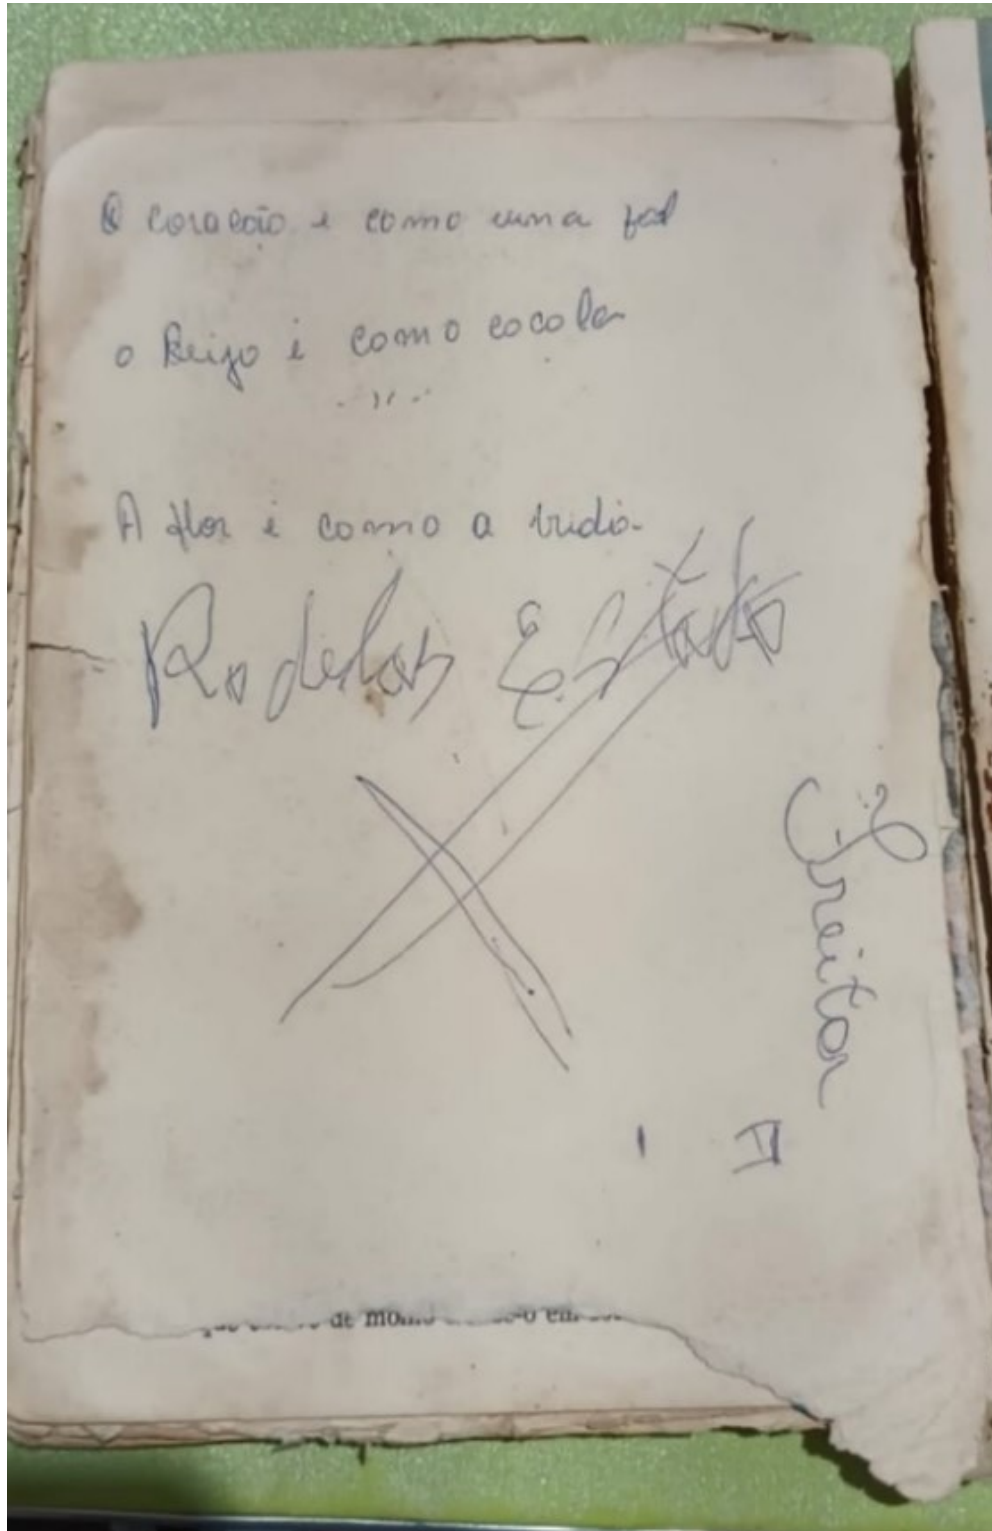 O coracão é como uma
o Beijo é como cocola
A flor é como a vida
Rodelas Estado
Freitor
I II
de